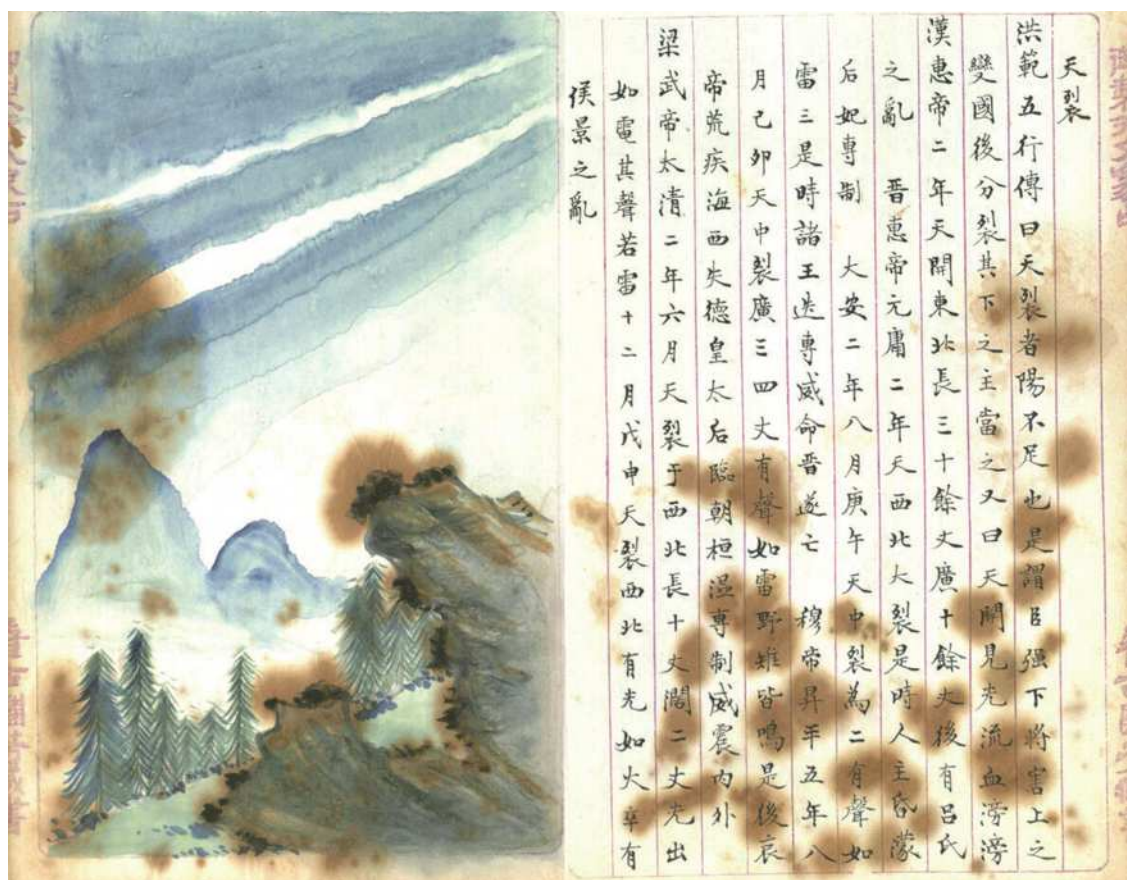 天裂
洪範五行傳曰天裂者陽不足也是謂臣强下將害上之
變國後分裂其下之主當之又曰天開見光流血滂滂
漢惠帝二年天開東北長三十餘丈廣十餘丈後有呂氏
之亂 晉惠帝元庸二年天西北大裂是時人主昏濛
后妃專制 大安二年八月庚午天中裂為二有聲如
雷三是時諸王迭專威命晉遂亡 穆帝昇平五年八
月己卯天中裂廣三四丈有聲如雷野雉皆鳴是後哀
帝荒疾海西失德皇太后臨朝桓溫專制威震內外
梁武帝太清二年六月天裂于西北長十丈濶二丈光出
如電其聲若雷十二月戊申天裂西北有光如火卒有
侯景之亂